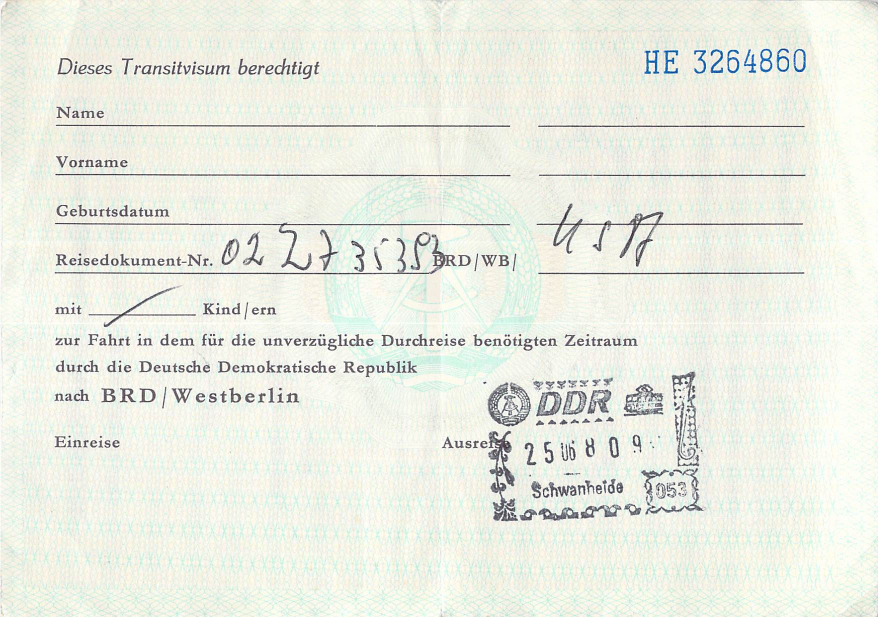 Dieses Transitvisum berechtigt HE 3264860
Name
Vorname
Geburtsdatum
Reisedokument-Nr. BRD/WB/
mit Kind/ern
zur Fahrt in dem für die unverzügliche Durchreise benötigten Zeitraum
durch die Deutsche Demokratische Republik
nach BRD/Westberlin
DDR
Einreise Ausreise
25 06 80 9
Schwanheide 053